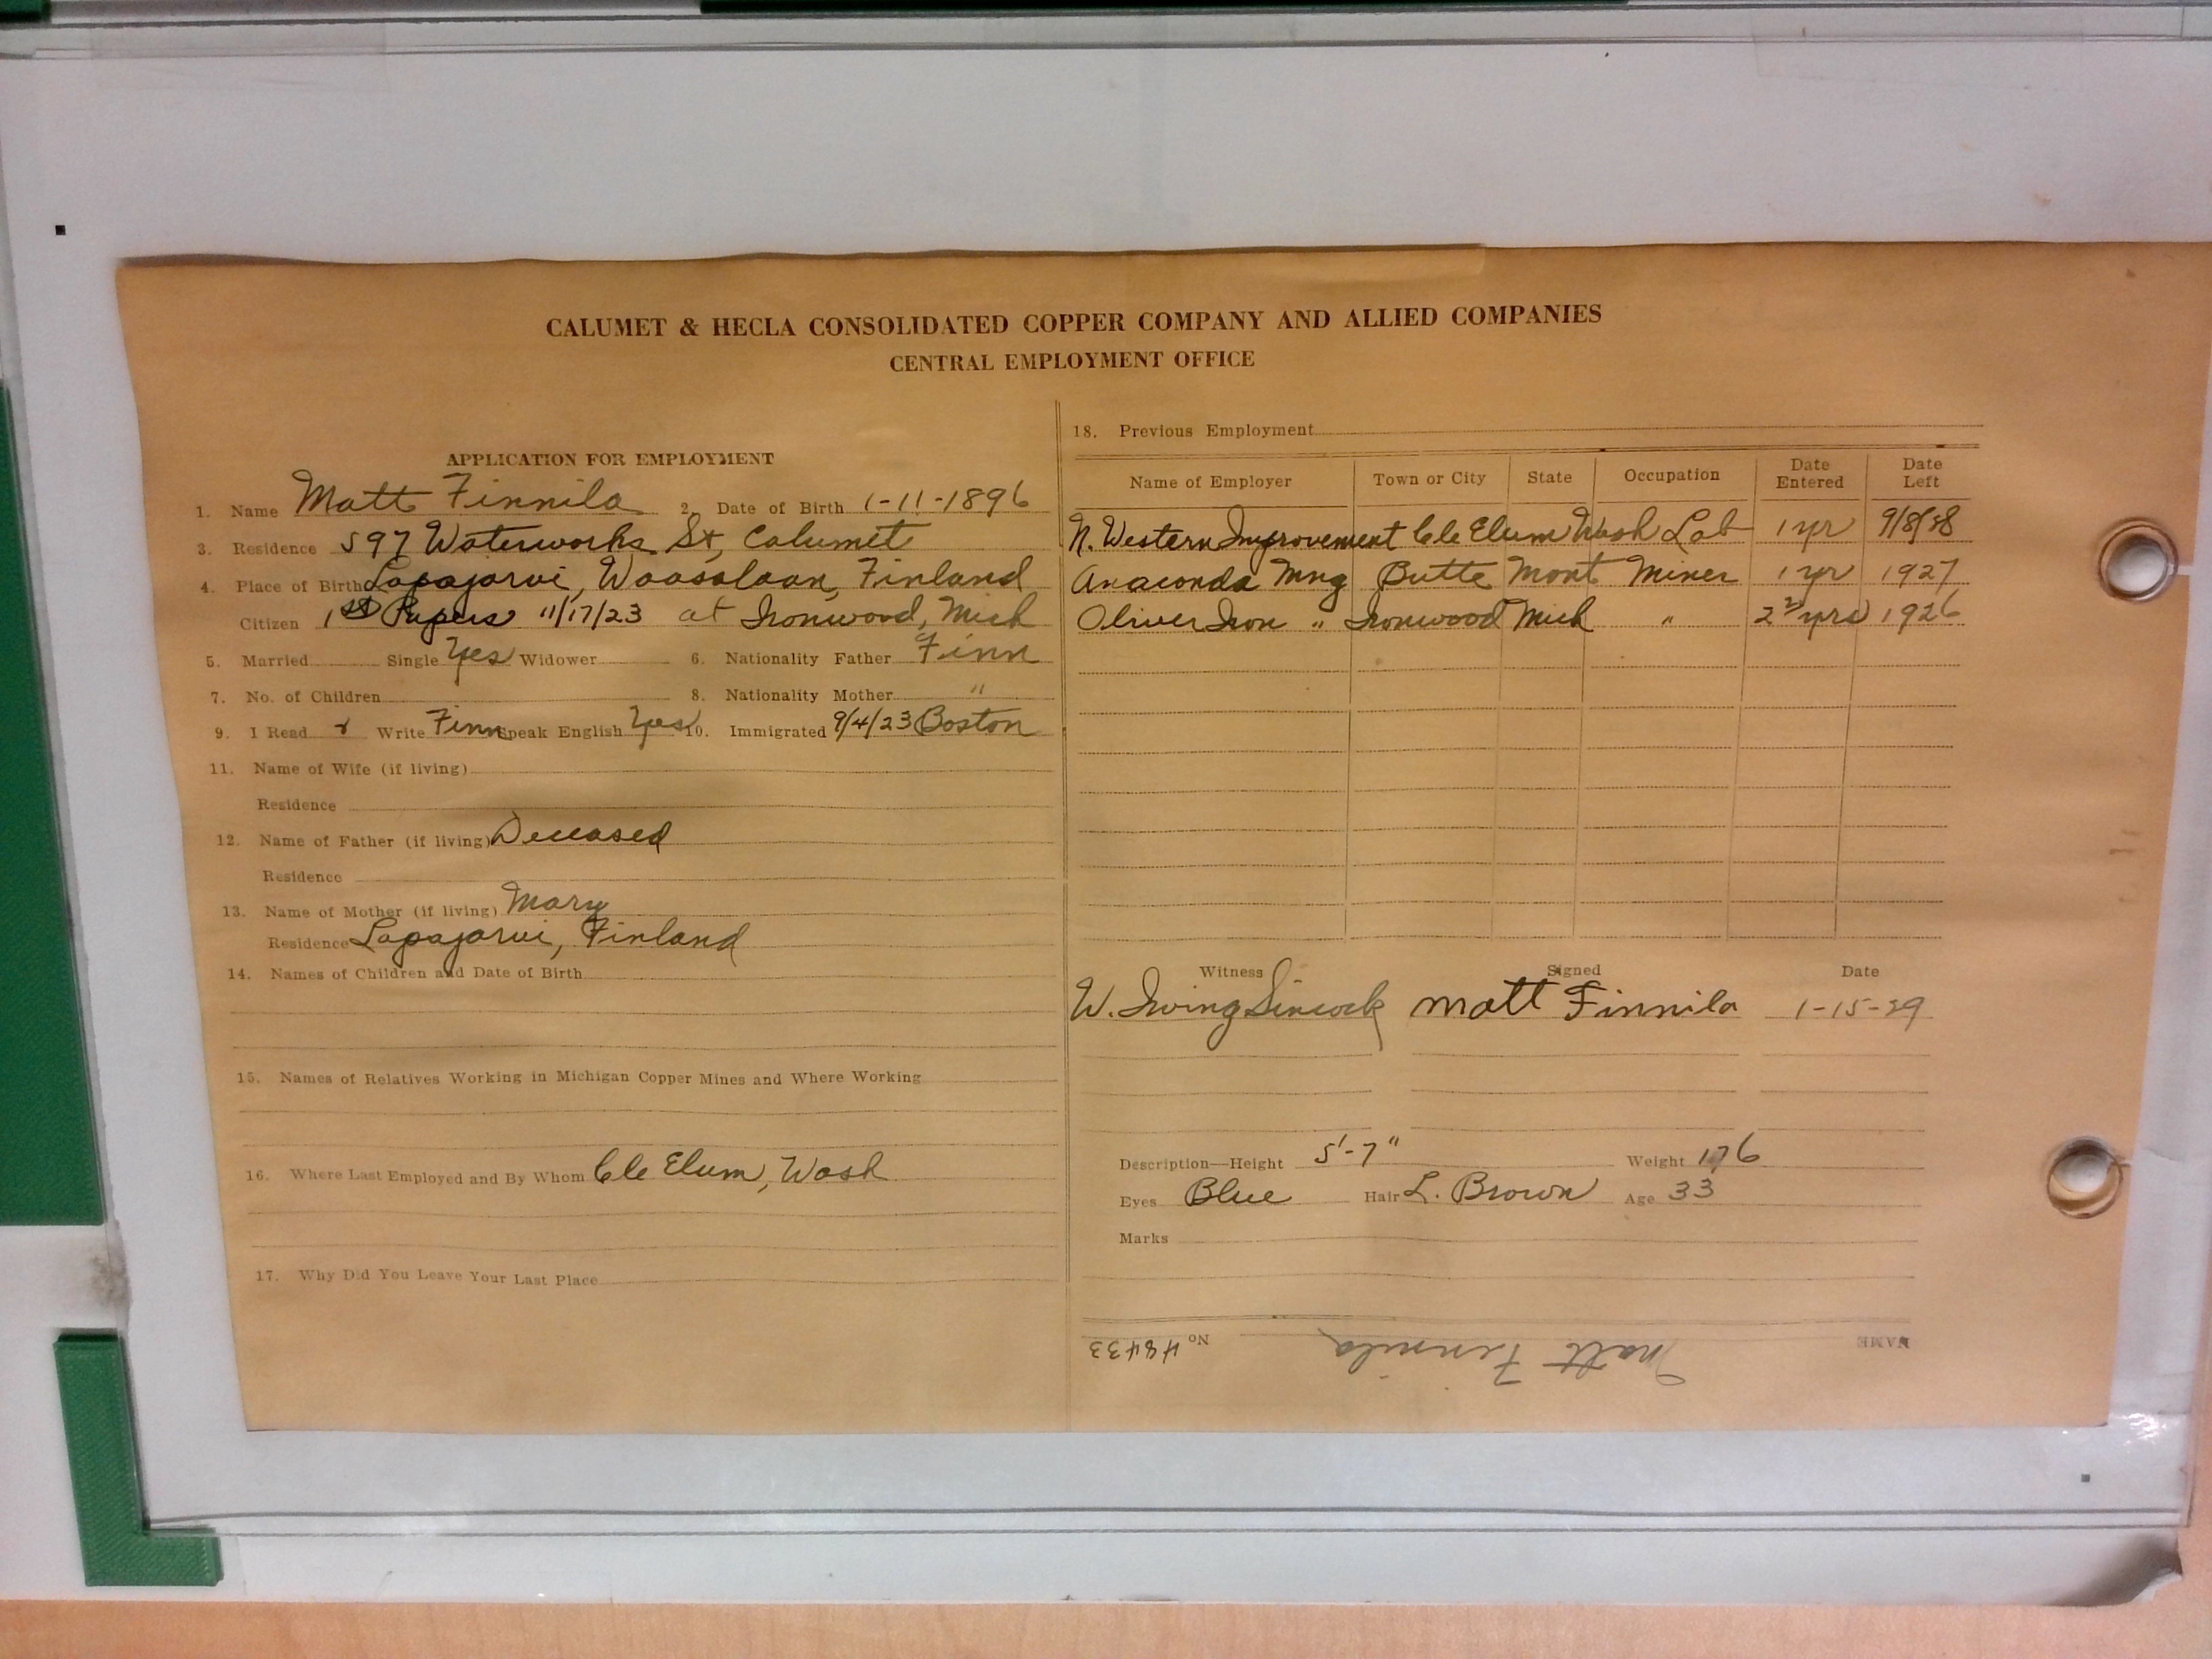 CALUMET & HECLA CONSOLIDATED COPPER COMPANY AND ALLIED COMPANIES
CENTRAL EMPLOYMENT OFFICE
APPLICATION FOR EMPLOYMENT
1. Name Matt Finnila 2. Date of Birth 1-11-1896
3. Residence 597 Waterworks St, Calumet
4. Place of Birth Lapajarvi, Waasalaan, Finland
Citizen 1st Papers 11/17/23 at Ironwood, Mich
5. Married Single Yes Widower 6. Nationality Father Finn
7. No. of Children 8. Nationality Mother "
9. I Read & Write Finn Speak English Yes 10. Immigrated 9/4/23 Boston
11. Name of Wife (if living)
Residence
12. Name of Father (if living) Deceased
Residence
13. Name of Mother (if living) Mary
Residence Lapajarvi, Finland
14. Names of Children and Date of Birth
15. Names of Relatives Working in Michigan Copper Mines and Where Working
16. Where Last Employed and By Whom Cle Elum, Wash
17. Why Did You Leave Your Last Place
18. Previous Employment
Name of Employer Town or City State Occupation Date Entered Date Left
N. Western Improvement Cle Elum Wash Lab 1 yr 9/8/28
Anaconda Mng Butte Mont Miner 1 yr 1927
Oliver Iron " Ironwood Mich " 2 yrs 1926
Witness Signed Date
W. Irving Sincock Matt Finnila 1-15-29
Description—Height 5'-7" Weight 176
Eyes Blue Hair L. Brown Age 33
Marks
NAME Matt Finnila No 48433